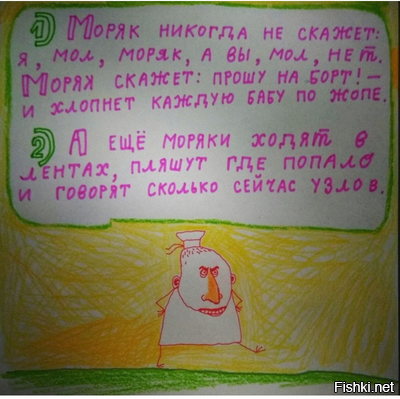 1) Моряк никогда не скажет:
я, мол, моряк, а вы, мол, нет.
Моряк скажет: прошу на борт! —
и хлопнет каждую бабу по жопе.
2) А ещё моряки ходят в
лентах, пляшут где попало
и говорят сколько сейчас узлов.
Fishki.net